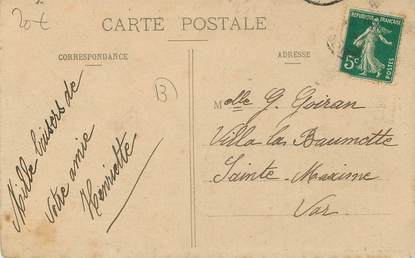 20 €
CARTE POSTALE
CORRESPONDANCE
ADRESSE
REPUBLIQUE FRANÇAISE
5c
POSTES
B
Mille baisers de
votre amie
Henriette
Melle G. Goiran
Villa la Baumette
Sainte-Maxime
Var